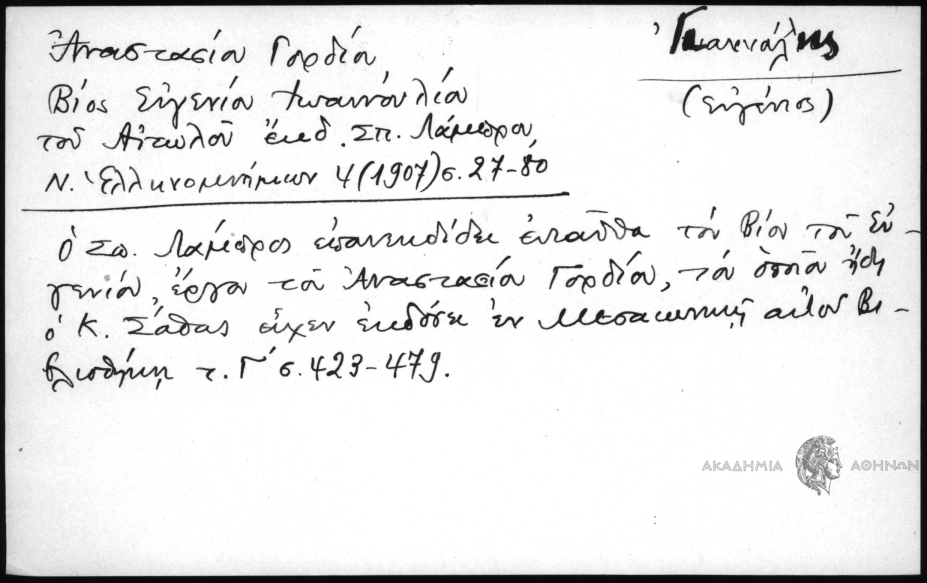 Ἀναστασίου Γορδίου
Βίος Εὐγενίου Ἰωαννουλίου
τοῦ Αἰτωλοῦ ἔκδ. Σπ. Λάμπρου,
Ν. Ἑλληνομνήμων 4 (1907) σ. 27-80
(Εὐγένιος)
ὁ Σπ. Λάμπρος ἐπανεκδίδει ἐνταῦθα τὸν Βίον τοῦ Εὐ-
γενίου, ἔργον τοῦ Ἀναστασίου Γορδίου, τὸ ὁποῖον ἤδη
ὁ Κ. Σάθας εἶχεν ἐκδόσει ἐν Μεσαιωνικῇ αὐτοῦ Βι-
βλιοθήκῃ τ. Γ΄ σ. 423-479.
ΑΚΑΔΗΜΙΑ ΑΘΗΝΩΝ